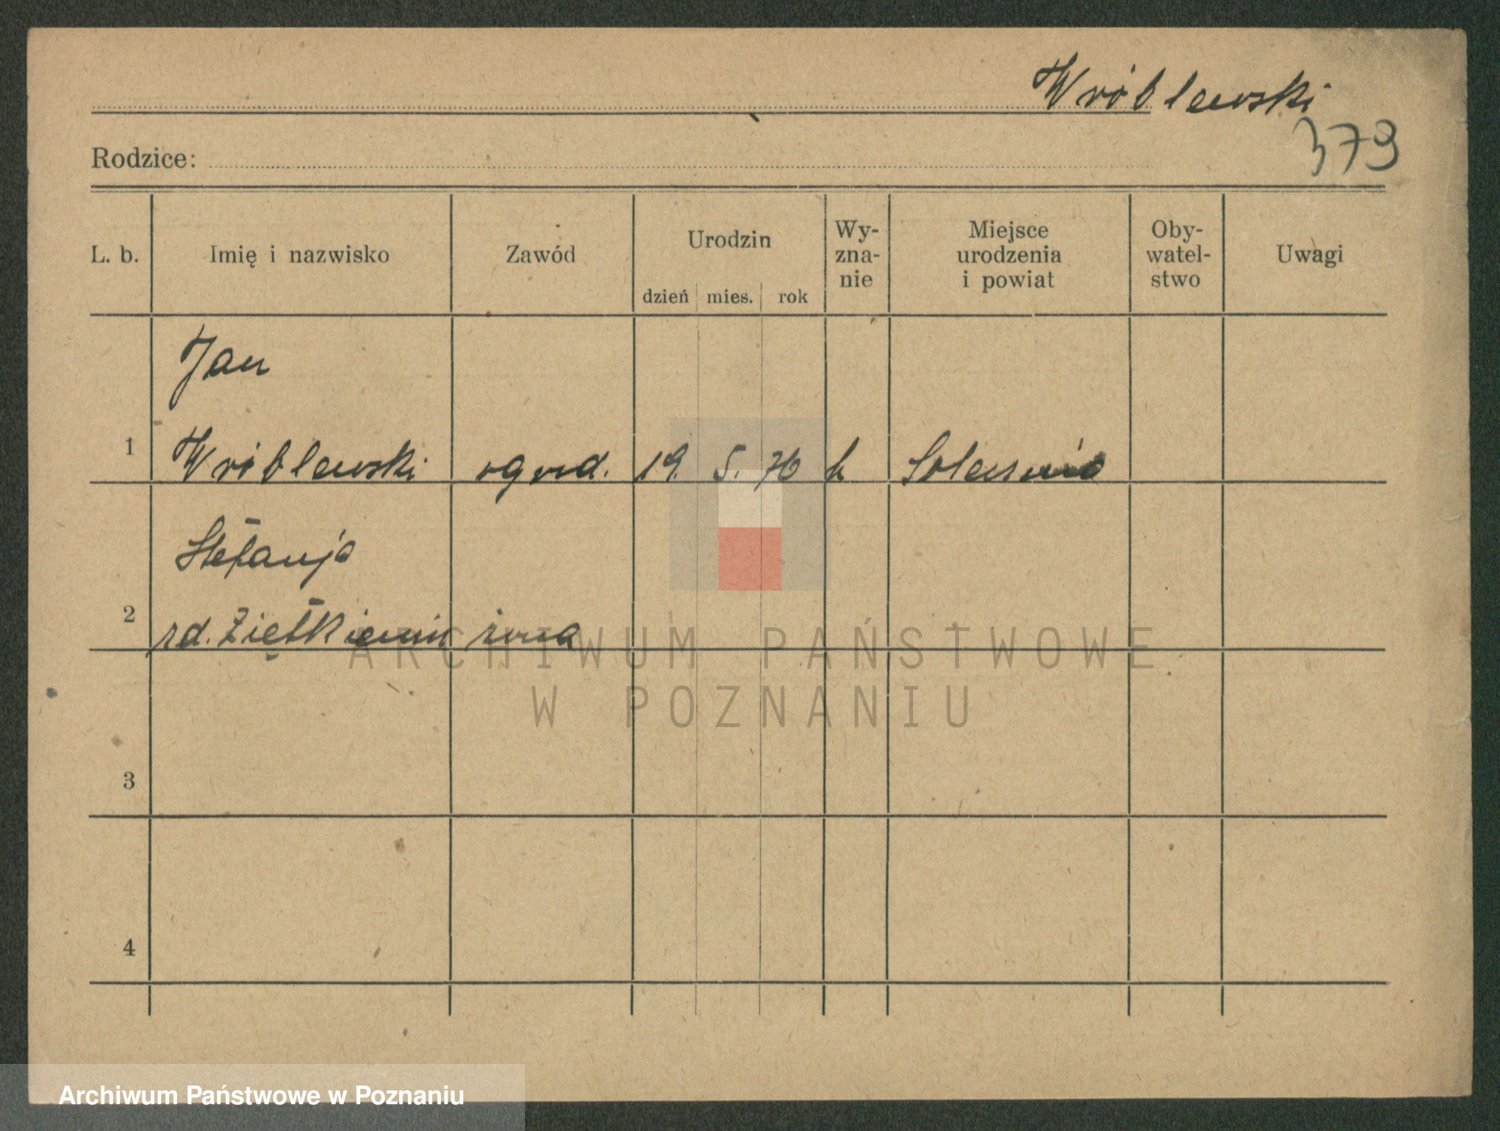 Wróblewski
379
Rodzice:
L. b. Imię i nazwisko Zawód Urodzin dzień mies. rok Wy-zna-nie Miejsce urodzenia i powiat Oby-watel-stwo Uwagi
Jan
1 Wróblewski ogrod. 19. 5. 76 k
Stefanja
2 żona
3
4
ARCHIWUM PAŃSTWOWE
W POZNANIU
Archiwum Państwowe w Poznaniu